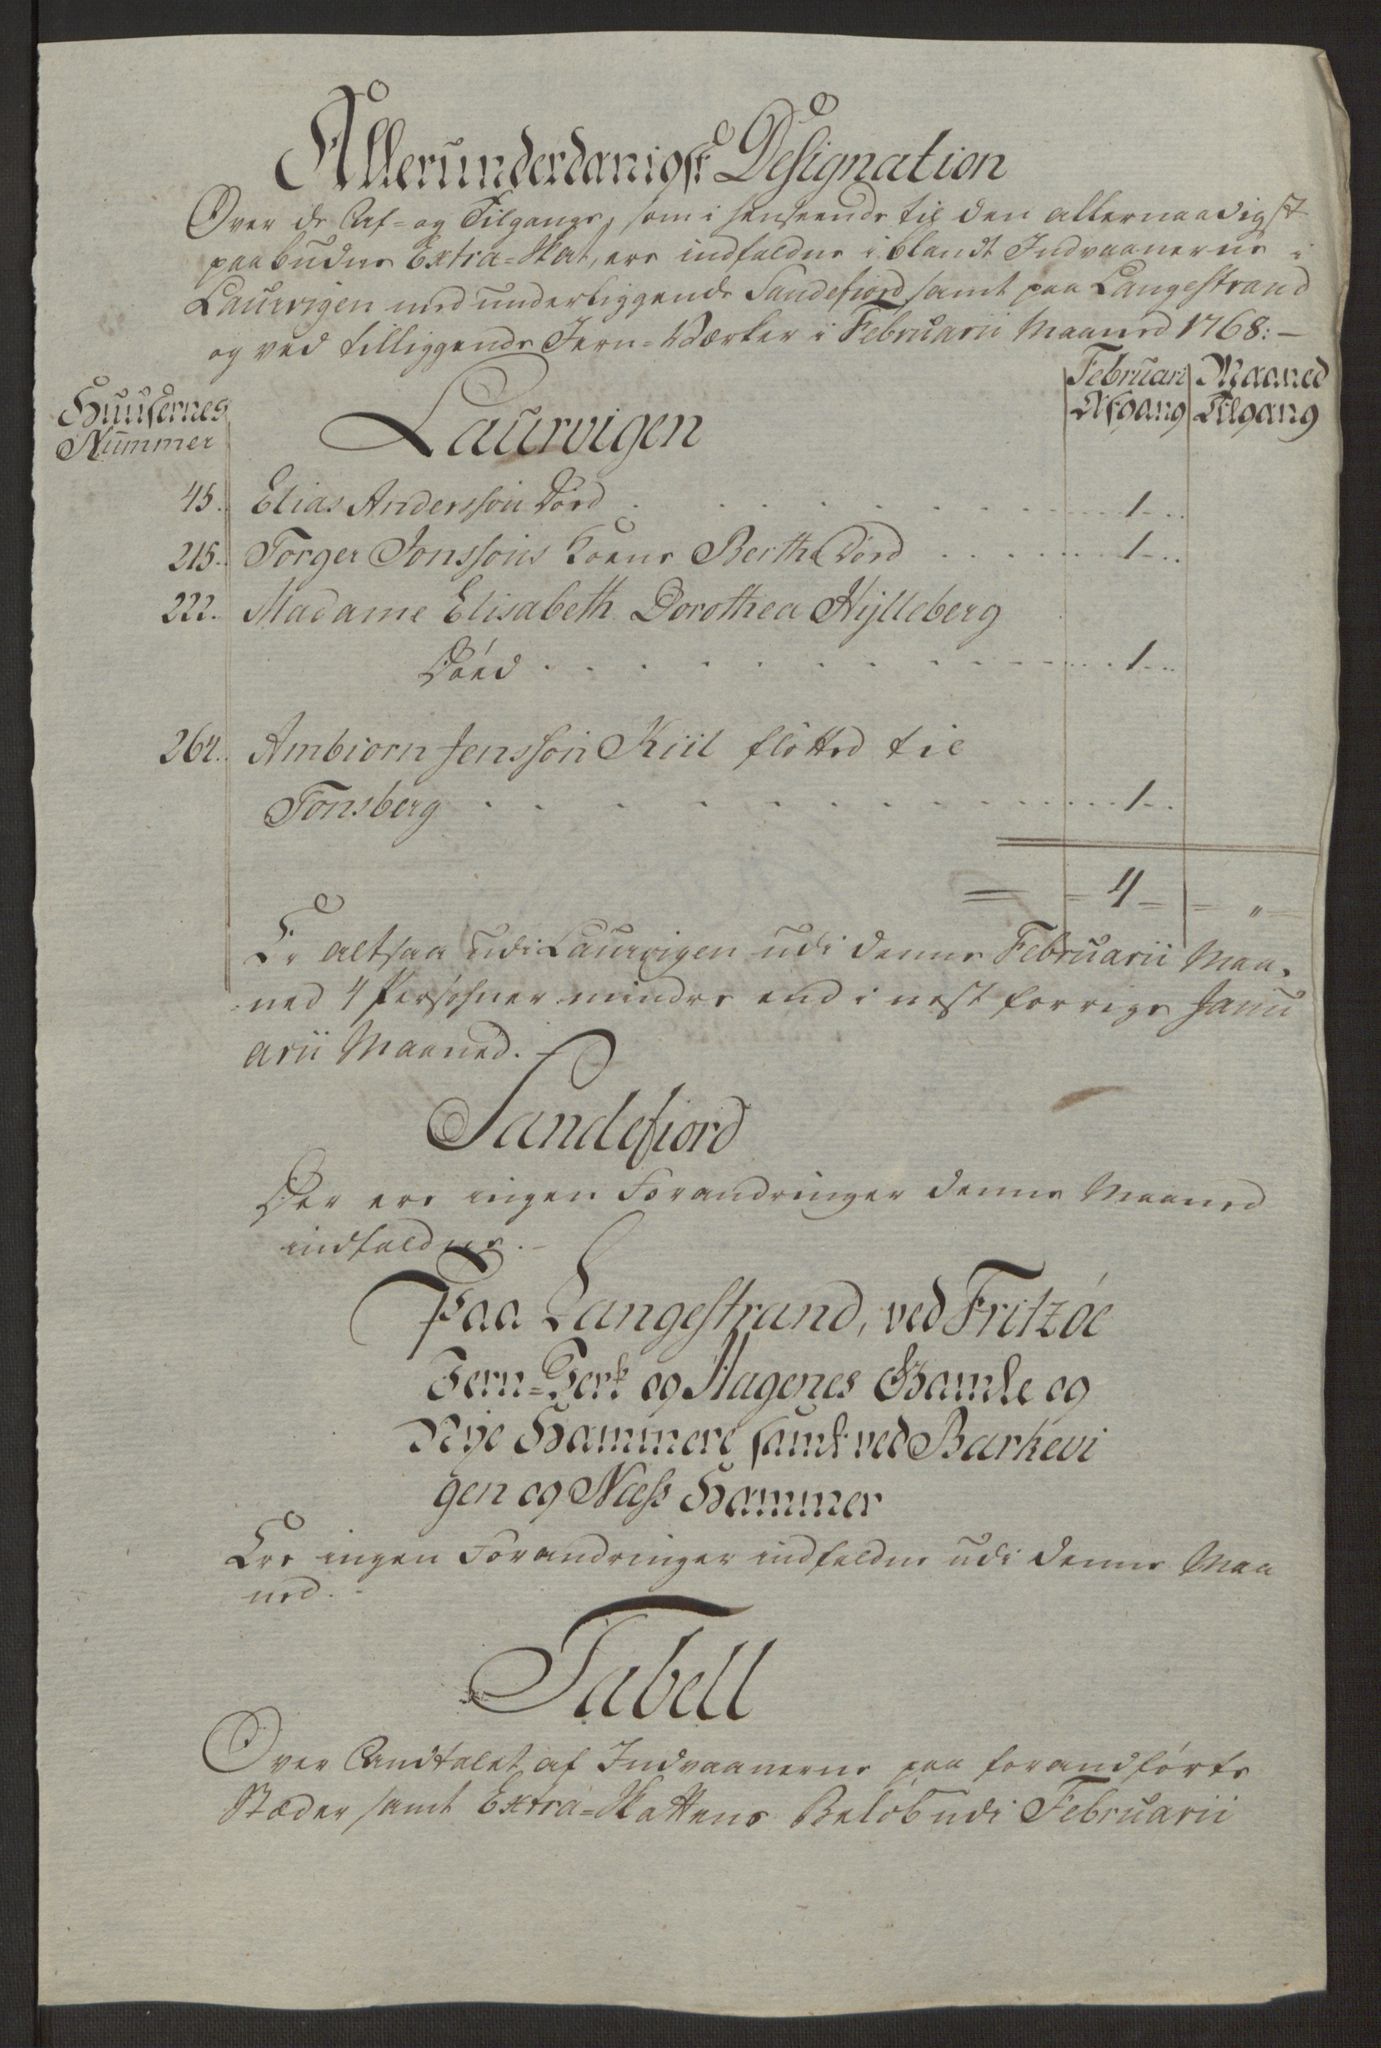 Allerunderdanigst Designation
Over de Af- og Tilgange, som i henseende til den allernaadigst
paabudne Extra-Skat, ere indfaldne i blandt Indvaanerne i
Laurvigen med underliggende Sandefiord samt paa Langestrand
og ved tilliggende Jern-Værker i Februarii Maaned 1768:-
Huusernes Nummer
Laurvigen
Februari Maaned
Afgang Tilgang
45. Elias Anderssøn Død . . . 1 . .
215. Torger Jonssøns Kone Bertha Død . . . 1 . .
222. Madame Elisabeth Dorothea Hylleberg
Død . . . 1 . .
264. Ambiorn Jenssøn Kiil fløtted til
Tonsberg . . . 1 . .
= = 4 = = " =
Er altsaa udi Laurvigen udi denne Februarii Maa-
ned 4 Persohner mindre end i nest forrige Janu
arii Maaned. -
Sandefiord
Der ere ingen Forandringer denne Maaned
indfaldne. -
Paa Langestrand, ved Fritzøe
Jern-Verk og Hagenes Gamle og
Nye Hammere samt ved Barkevi
gen og Næss Hammer
Ere ingen Forandringer indfaldne udi denne Maa
ned. -
Tabell
Over Andtalet af Indvaanerne paa foranførte
Stæder samt Extra-Skattens Beløb udi Februarii